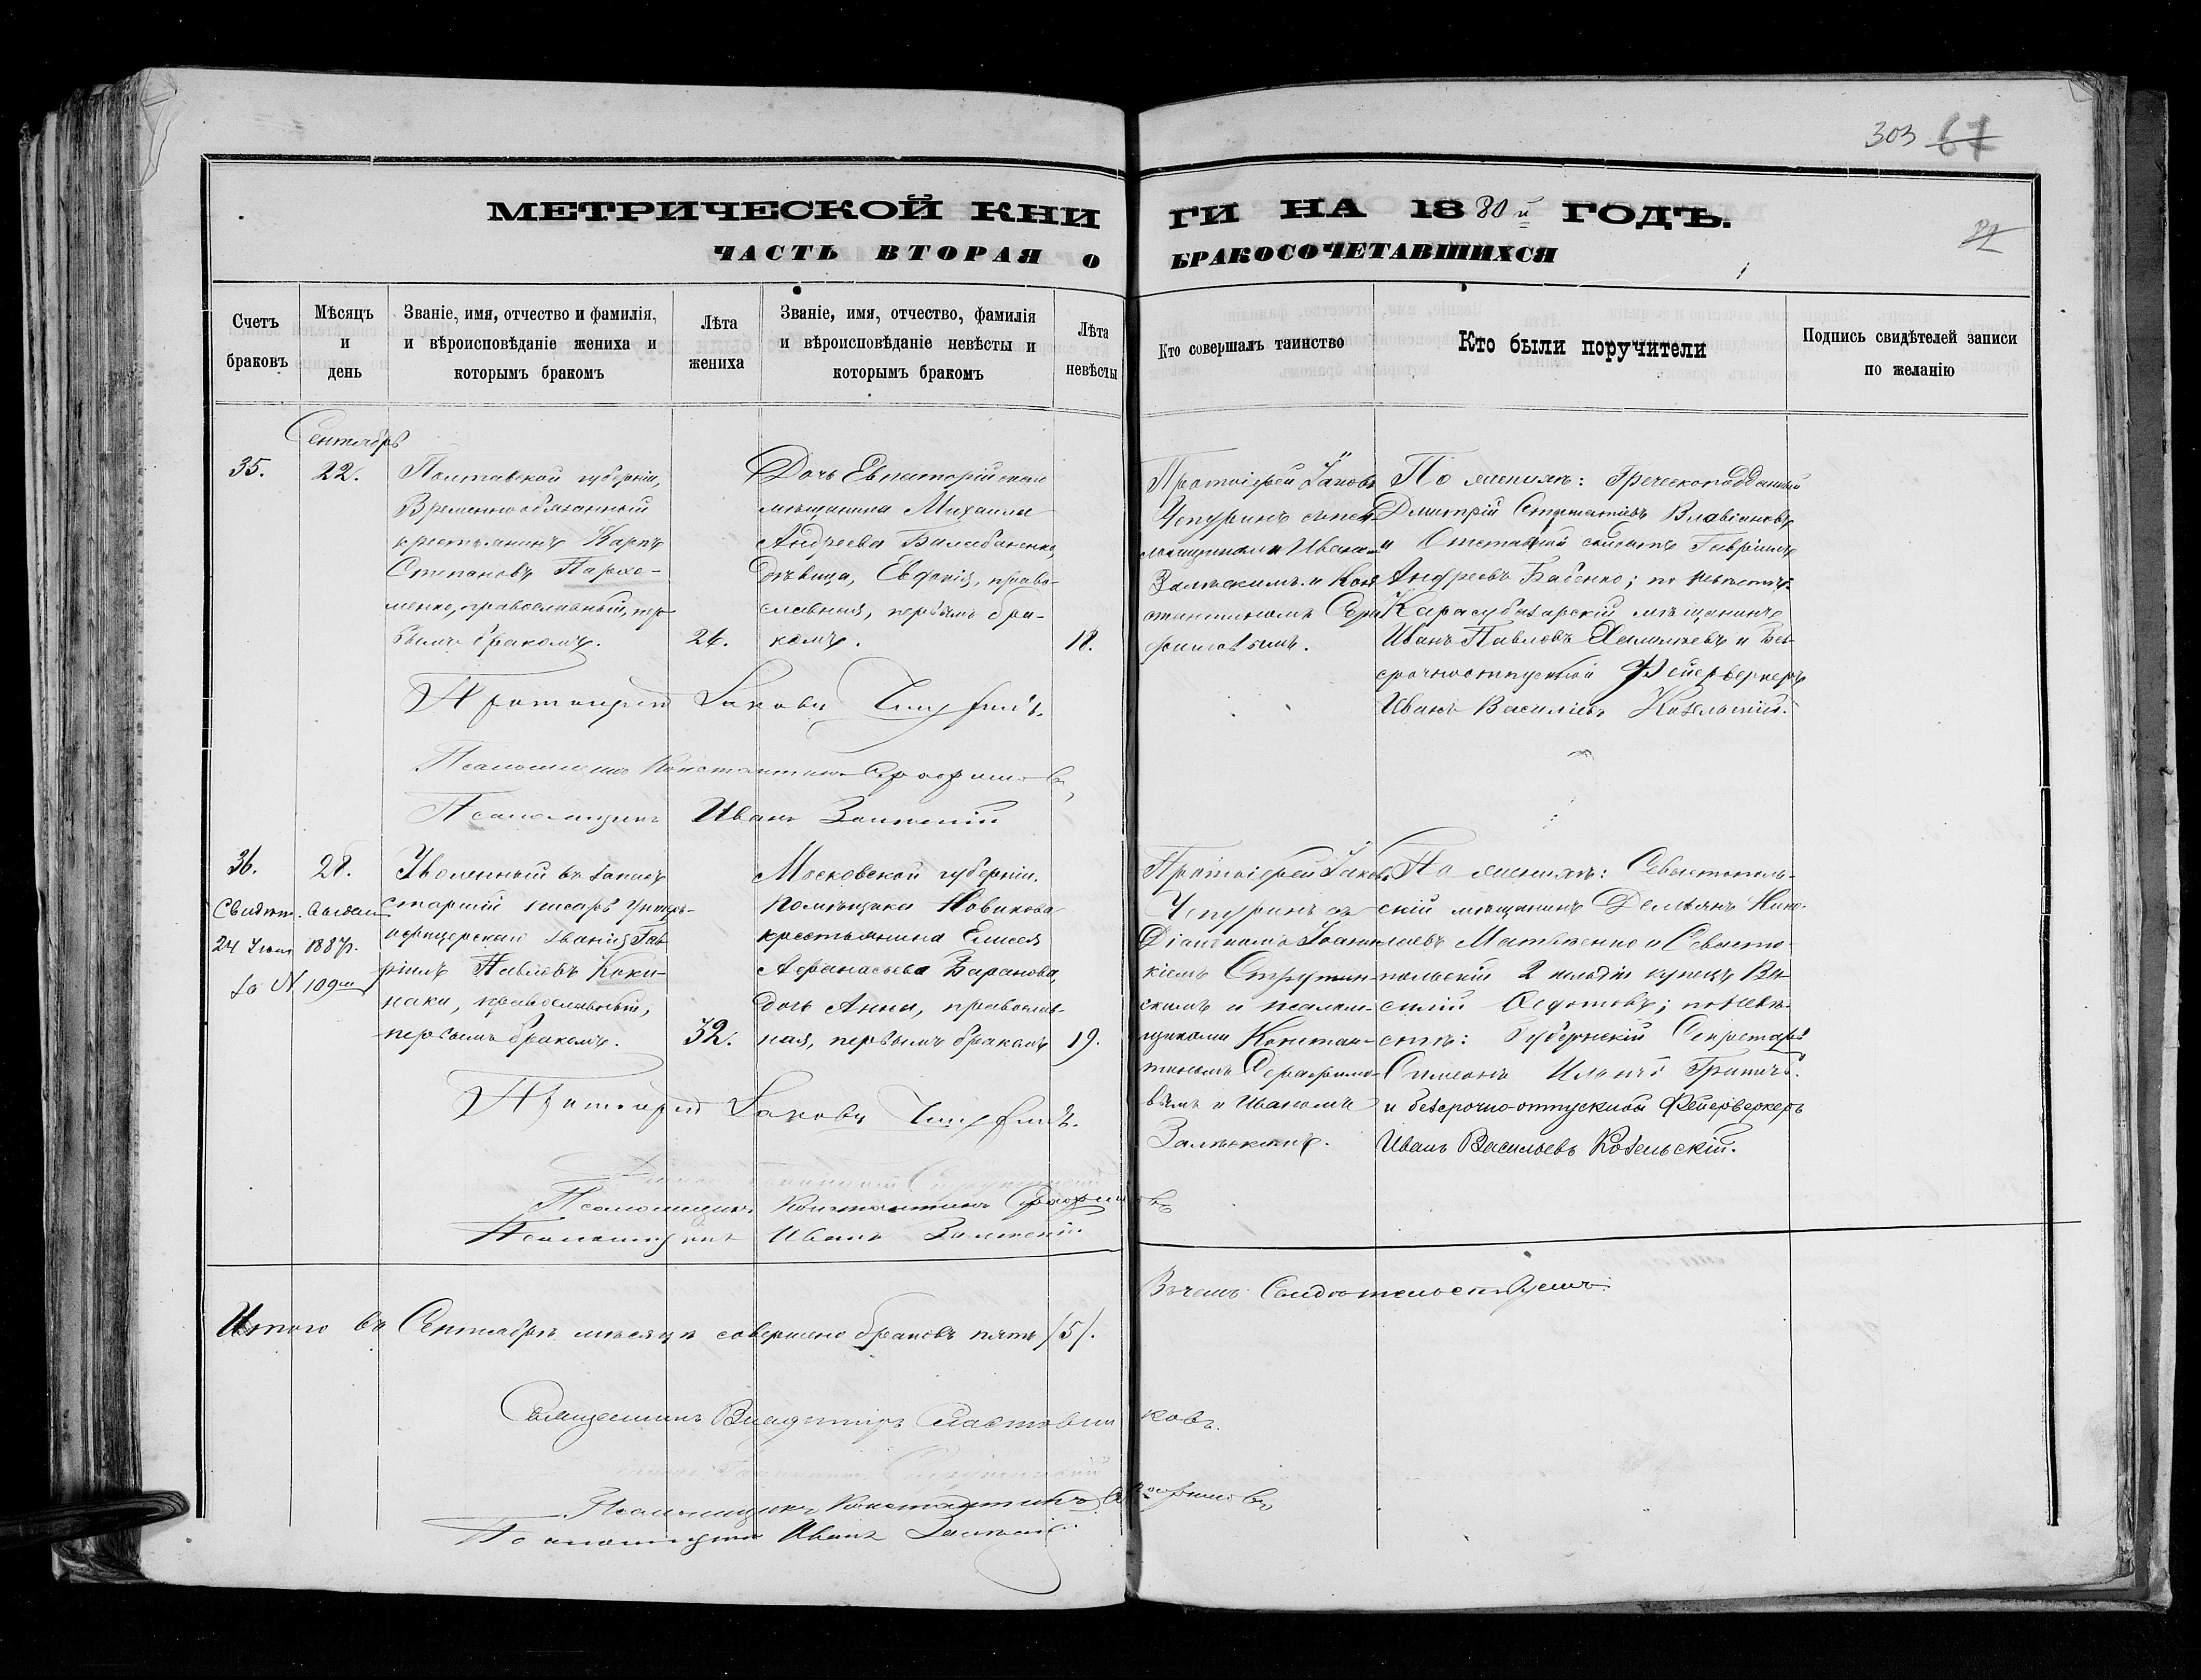 303 67
МЕТРИЧЕСКОЙ КНИГИ НА 1880й ГОДЪ.
ЧАСТЬ ВТОРАЯ О БРАКОСОЧЕТАВШИХСЯ
Счетъ браковъ
Мѣсяцъ и день
Званіе, имя, отчество и фамилія,
и вѣроисповѣданіе жениха и
которымъ бракомъ
Лѣта жениха
Званіе, имя, отчество, фамилія
и вѣроисповѣданіе невѣсты и
которымъ бракомъ
Лѣта невѣсты
Кто совершалъ таинство
Кто были поручители
Подпись свидѣтелей записи
по желанію
Сентябрь
35.
22.
Полтавской губерніи,
Временнообязанный
крестьянинъ Карпъ
Степановъ Пархо-
менко, православный, пер-
вымъ бракомъ.
24.
Дочь Евпаторійскаго
мѣщанина Михаила
Андреева Балабаненко,
дѣвица, Евфимія, право-
славная, первымъ бра-
комъ.
18.
Протоіерей Іаковъ
Чепуринъ съ псал-
момщиками Ивано-
Залѣскимъ и Кон-
стантиномъ Сера-
фимовымъ.
По женихѣ: Греческоподданный
Дмитрій Стаматіевъ
и Отставной солдатъ Гавріилъ
Андреевъ Бабенко; по невѣстѣ:
Карасубазарскій мѣщанинъ
Иванъ Павловъ и Без-
срочноотпускной Фейерверкеръ
Иванъ Васильевъ Козельскій.
Протоіерей Іаковъ Чепуринъ.
Псаломщикъ Константинъ Серафимовъ
Псаломщикъ Иванъ Залѣскій
36.
28.
Свидѣт. выдан
24 Іюня 1887г.
за № 109
Уволенный въ запасъ
старшій писарь унтеръ-
офицерскаго званія Гав-
ріилъ Павловъ Коки-
наки, православный,
первымъ бракомъ.
32.
Московской губерніи.
Помѣщика Новикова
крестьянина Елисея
Афанасьева Баранова,
дочь Анна, православ-
ная, первымъ бракомъ
19.
Протоіерей Іаковъ
Чепуринъ съ
Діакономъ Іоанни-
кіемъ Струтин-
скимъ и псалом-
щиками Констан-
тиномъ Серафимо-
вымъ и Иваномъ
Залѣскимъ.
По женихѣ: Севастополь-
скій мѣщанинъ Демьянъ Нико-
лаевъ Матвѣенко и Севасто-
польскій 2 гильдіи купецъ Ва-
силій Федотовъ; по невѣ-
стѣ: Губернскій Секретарь
Симеонъ Ильичъ
и безсрочно-отпускной Фейерверкеръ
Иванъ Васильевъ Козельскій.
Протоіерей Іаковъ Чепуринъ.
Діаконъ Іоанникій Струтинскій
Псаломщикъ Константинъ Серафимовъ
Псаломщикъ Иванъ Залѣскій
Итого въ Сентябрѣ мѣсяцѣ совершено браковъ пять /5/.
Въ чемъ Свидѣтельствуемъ:
Священникъ Владиміръ Славковъ.
Діаконъ Іоанникій Струтинскій
Псаломщикъ Константинъ Серафимовъ
Псаломщикъ Иванъ Залѣскій